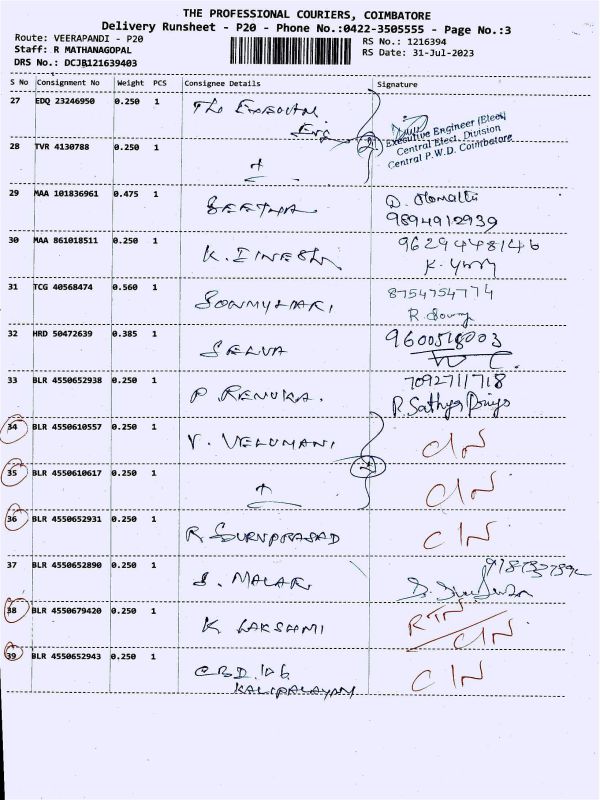 THE PROFESSIONAL COURIERS, COIMBATORE
Delivery Runsheet - P20 - Phone No.:0422-3505555 - Page No.:3
Route: VEERAPANDI - P20
RS No.: 1216394
Staff: R MATHANAGOPAL
RS Date: 31-Jul-2023
DRS No.: DCJB121639403
S No Consignment No Weight PCS Consignee Details Signature
27 EDQ 23246950 0.250 1
Executive Engineer (Elec)
Central Elect. Division
Central P.W.D. Coimbatore
28 TVR 4130788 0.250 1
29 MAA 101836961 0.475 1 SEETHA D.
9894912939
30 MAA 861018511 0.250 1 K. DINESH 9629448146
K.
31 TCG 40568474 0.560 1 SOWMYAHARI, 8754754774
R. Sowmy
32 HRD 50472639 0.385 1 SELVA 9600518003
33 BLR 4550652938 0.250 1 P RENUKA. 7092711718
R. Sathya Priya
34 BLR 4550610557 0.250 1 V. VELUMANI C/N
35 BLR 4550610617 0.250 1 C/N
36 BLR 4550652931 0.250 1 R GURUPRASAD C/N
37 BLR 4550652890 0.250 1 S. MALAR
38 BLR 4550679420 0.250 1 K LAKSHMI RTN
C/N
39 BLR 4550652943 0.250 1 C/N
KALIPALAYAM